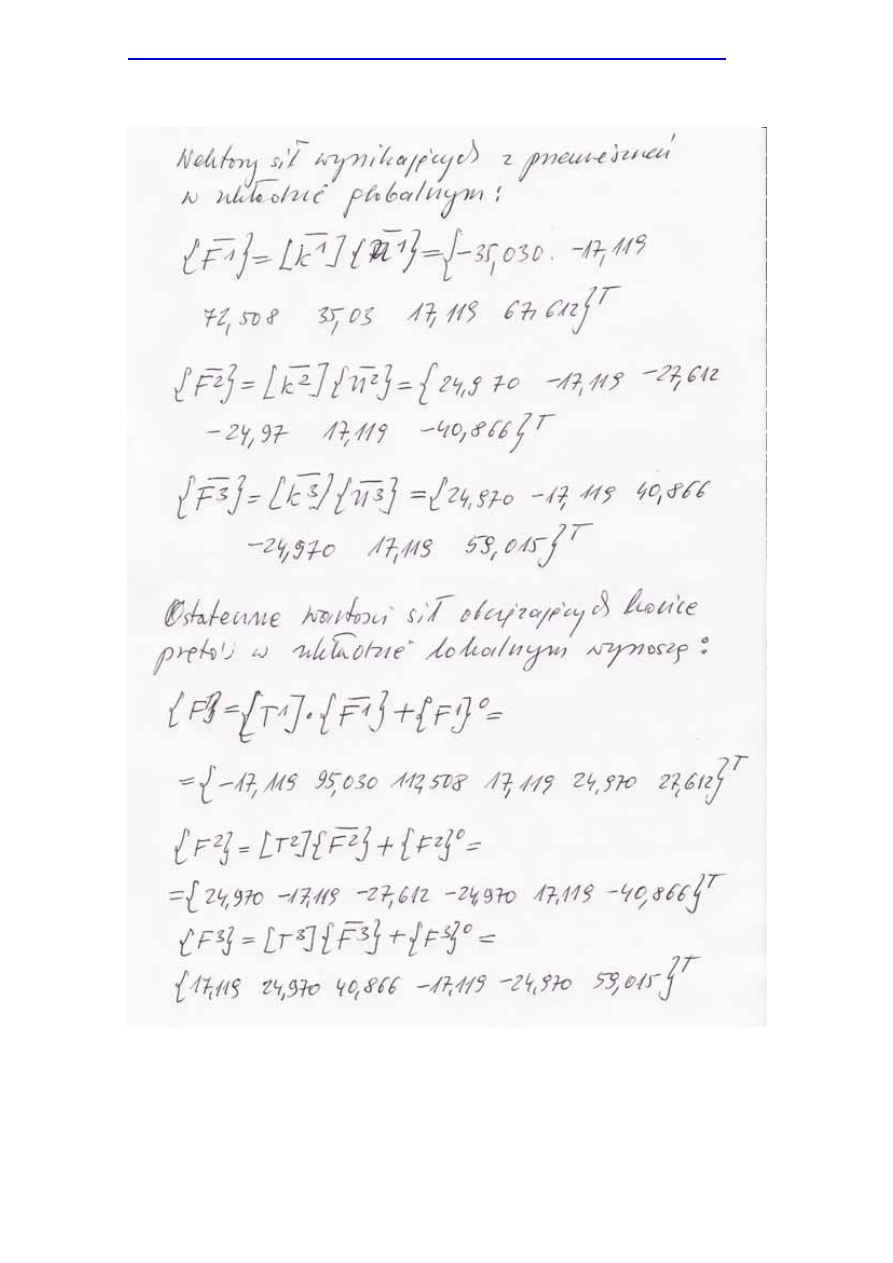 Wektory sił wynikających z przemieszczeń
w układzie globalnym:
{F̅1}=[k̅1]{u̅1}={-35,030. -17,119
72,508 35,03 17,119 67,612}ᵀ
{F̅2}=[k̅2]{u̅2}={24,970 -17,119 -27,612
-24,97 17,119 -40,866}ᵀ
{F̅3}=[k̅3]{u̅3}={24,970 -17,119 40,866
-24,970 17,119 59,015}ᵀ
Ostateczne wartości sił obciążających końce
prętów w układzie lokalnym wynoszą:
{F1}=[T1]·{F̅1}+{F1}⁰=
={-17,119 95,030 112,508 17,119 24,970 27,612}ᵀ
{F2}=[T2]{F̅2}+{F2}⁰=
={24,970 -17,119 -27,612 -24,970 17,119 -40,866}ᵀ
{F3}=[T3]{F̅3}+{F3}⁰=
{17,119 24,970 40,866 -17,119 -24,970 59,015}ᵀ